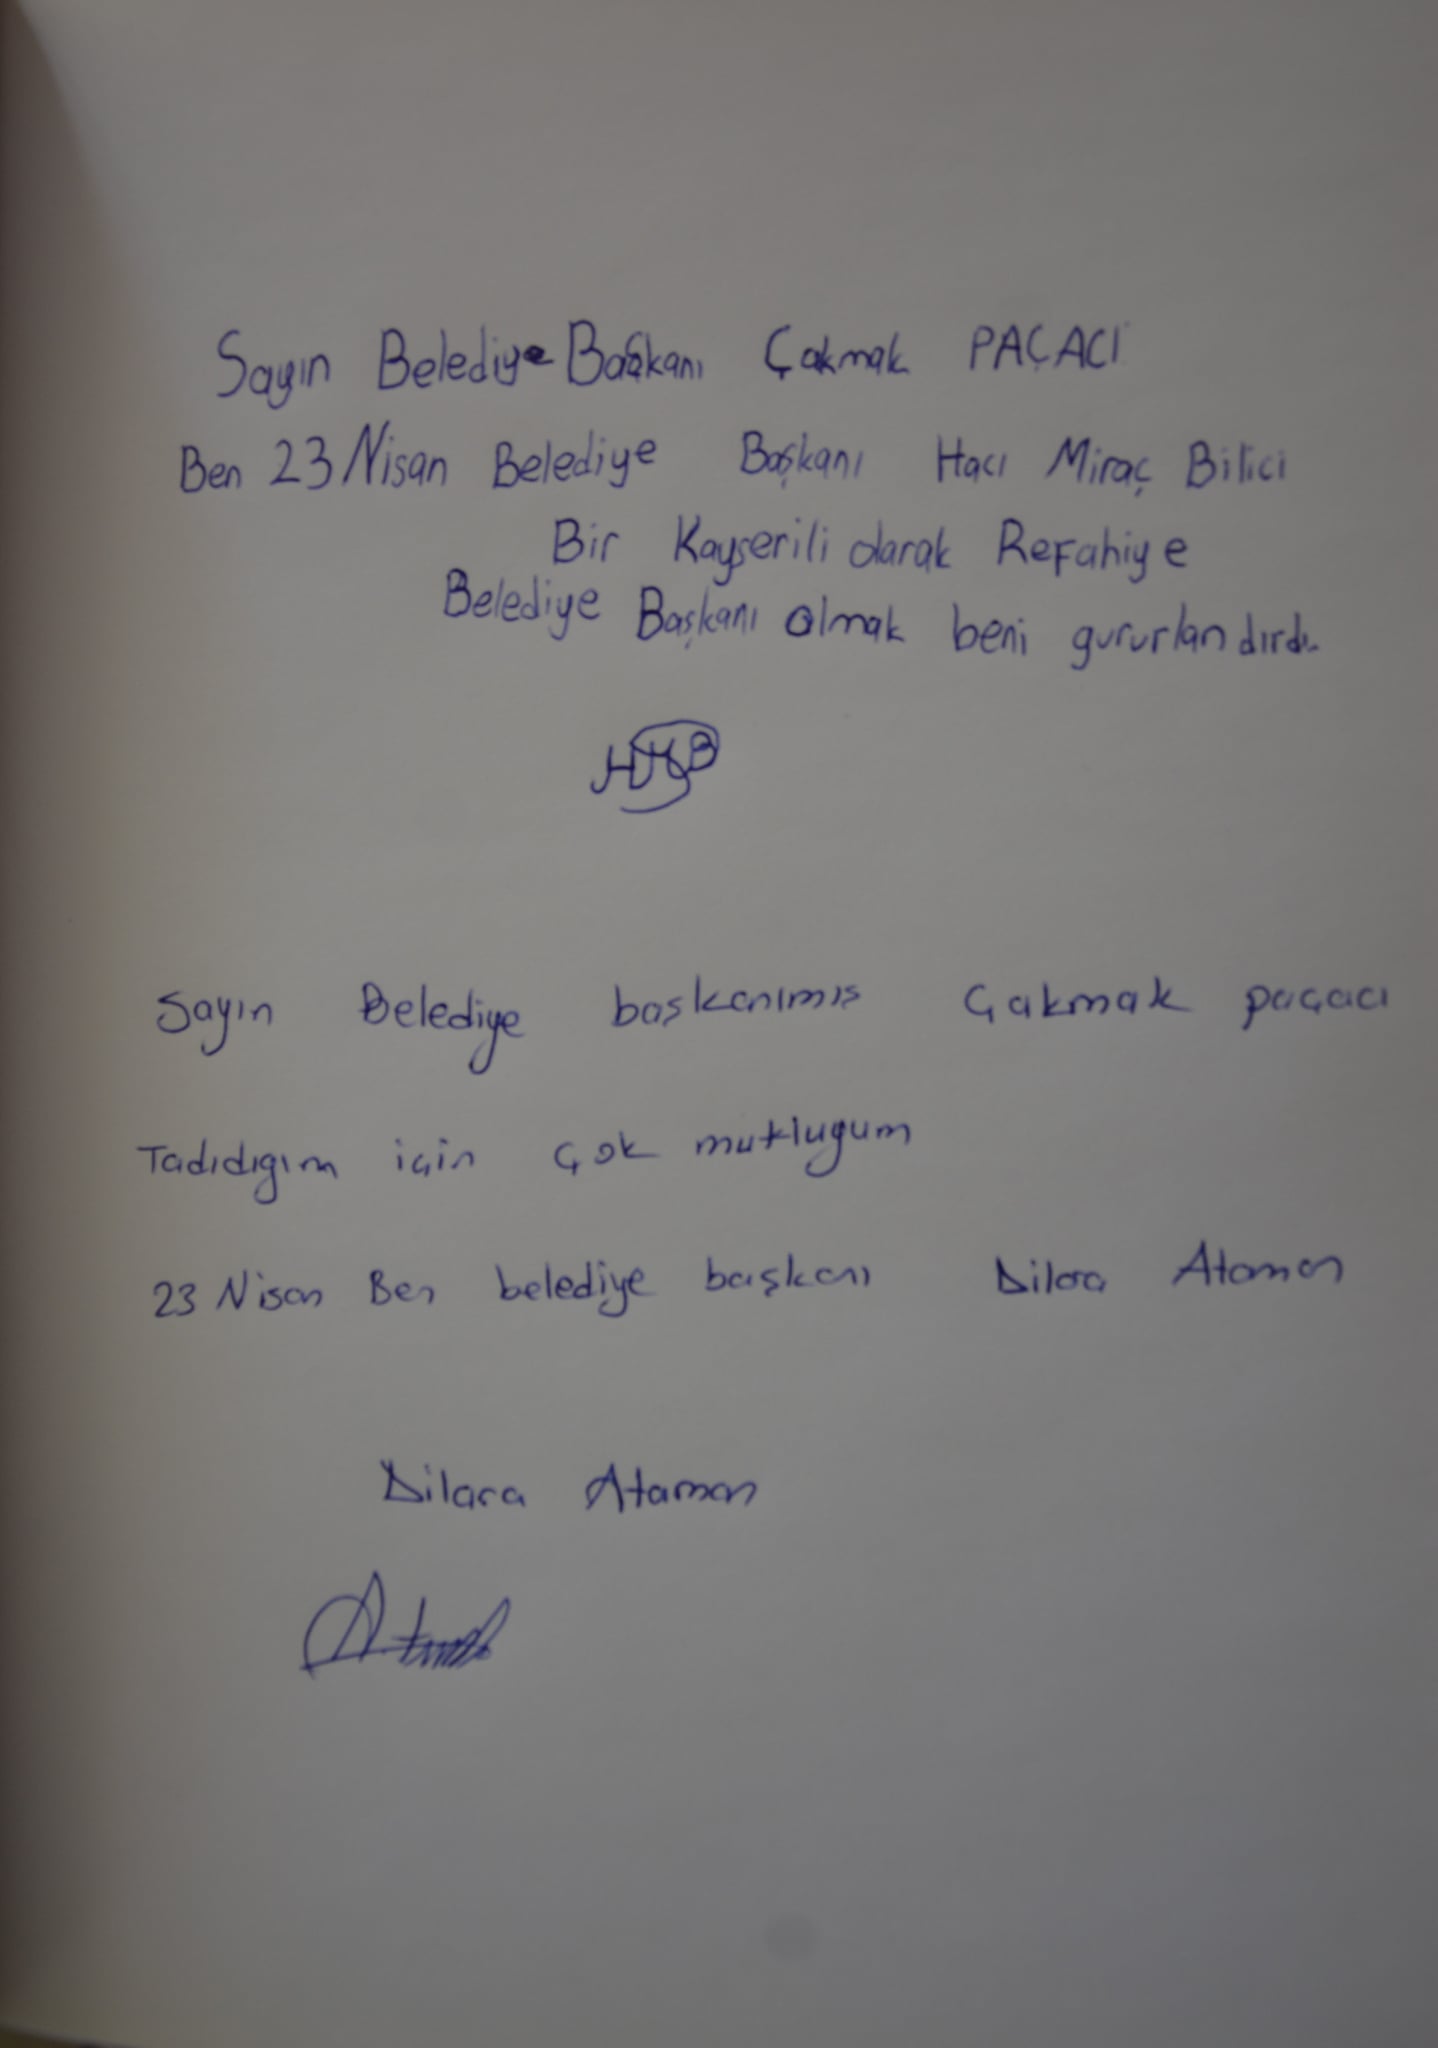 Sayın Belediye Başkanı Çakmak PAÇACI
Ben 23 Nisan Belediye Başkanı Hacı Miraç Bilici
Bir Kayserili olarak Refahiye
Belediye Başkanı olmak beni gururlandırdı.
HMB
Sayın Belediye başkanımıs Çakmak paçacı
Tadıdıgım için çok mutluyum
23 Nisan Ben belediye başkanı Dilara Ataman
Dilara Ataman